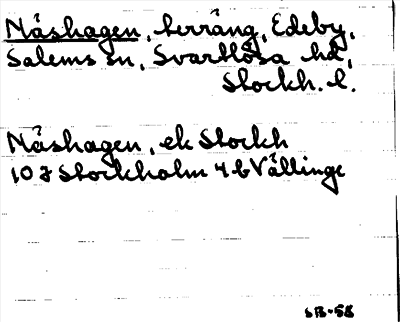 Näshagen, herräng, Edeby,
Salems sn, Svartlösa hd,
Stockh. l.
Näshagen, ek Stockh
10 I Stockholm 4 b Vällinge
SB-58